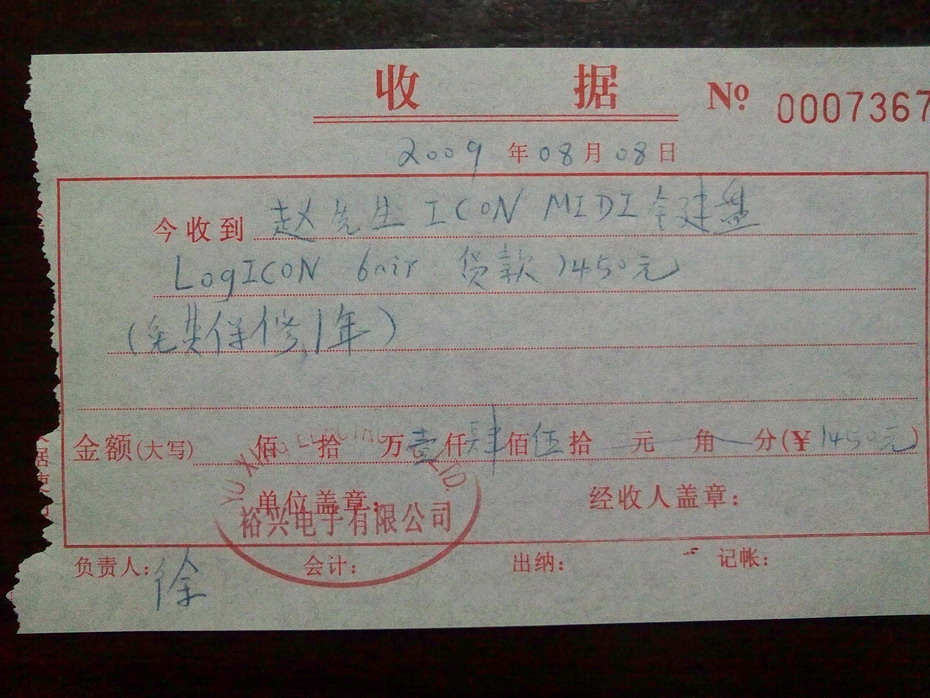 收 据 Nº 0007367
2009 年 08 月 08 日
今收到 赵先生 ICON MIDI 全建盘
LogICON 6air 货款 1450元
(免费保修,1年)
金额(大写) 佰 拾 万 壹 仟 肆 佰 伍 拾 元 角 分(¥1450元)
YU XING
LTD.
单位盖章: 经收人盖章:
裕兴电子有限公司
负责人: 徐 会计: 出纳: 记帐: